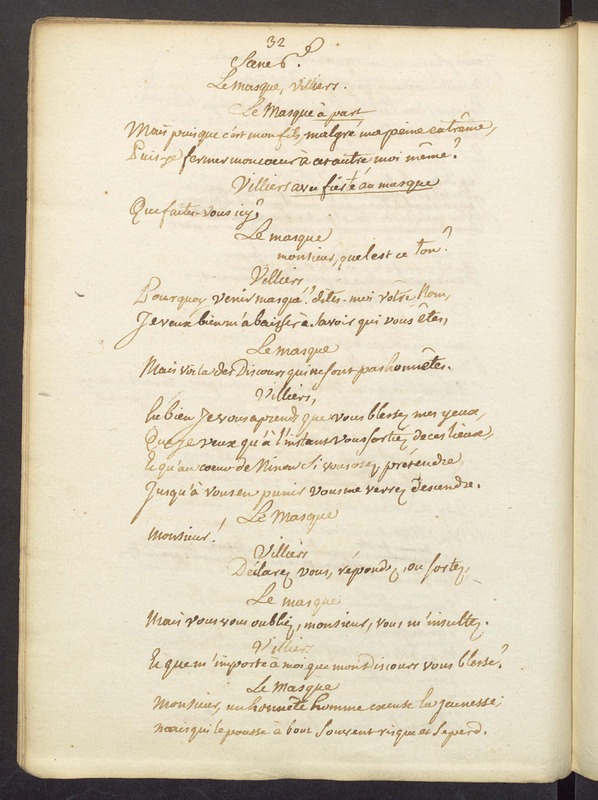 32
Scene 6.e
Le masque, Villiers.
Le Masque à part
Mais puisque c'est mon fils, malgré ma peine extrême,
Puis-je fermer mon coeur à cet autre moi même?
Villiers avec fierté au masque
Que faites-vous icy?
Le masque
monsieur, quel est ce ton?
Villiers
Pourquoy venir masqué? dites-moi votre Nom,
Je veux bien m'abaisser à savoir qui vous êtes,
Le masque
Mais voila des Discours qui ne sont pas honnêtes.
Villiers,
he bien Je vous aprends que vous blessez mes yeux,
Que je veux qu'à l'instant vous sortiez de ces lieux,
Et qu'au coeur de Ninon Si vous osez prétendre,
Jusqu'à vous en punir vous me verrez descendre.
Le Masque
monsieur!
Villiers
Déclarez vous, répondez, ou sortez,
Le masque
Mais vous vous oubliez, monsieur, vous m'insultez.
Villiers
Et que m'importe à moi que mon discours vous blesse?
Le Masque
Monsieur, un honnête homme excuse la jeunesse;
mais qui le pousse à bout Souvent risque et se perd.